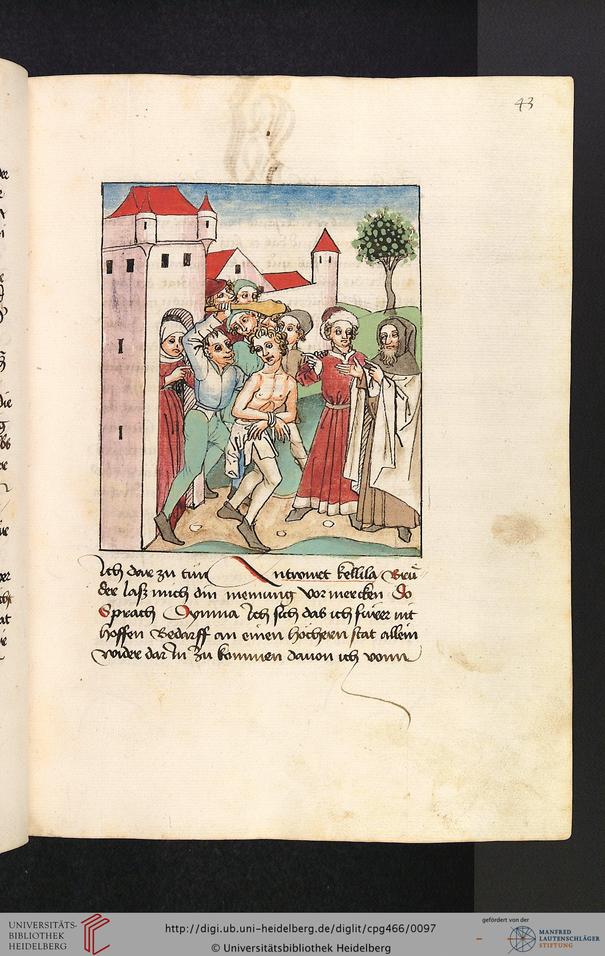 43
Ich dar zu tun Antwurt kellila Bru-
der laß mich din meinung vor mercken Do
Sprach Dymna Ich sich das ich fürer nit
hoffen Bedarff an einen hochern stat allein
wider dar In zu kommen dauon ich vonn
UNIVERSITÄTS-
BIBLIOTHEK
HEIDELBERG
http://digi.ub.uni-heidelberg.de/diglit/cpg466/0097
© Universitätsbibliothek Heidelberg
gefördert von der
MANFRED
LAUTENSCHLÄGER
STIFTUNG